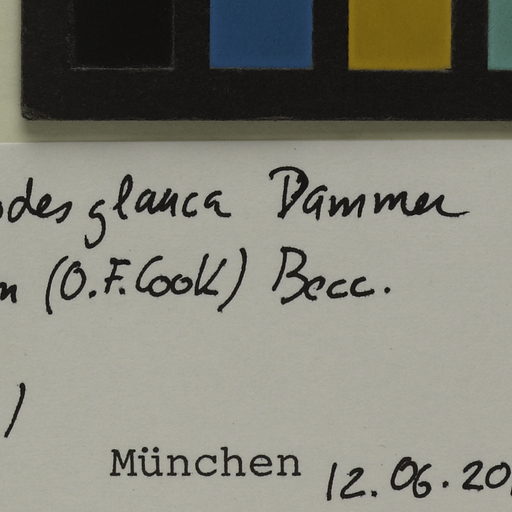 odes glauca Dammer
n (O.F. Cook) Becc.
)
München 12.06.20